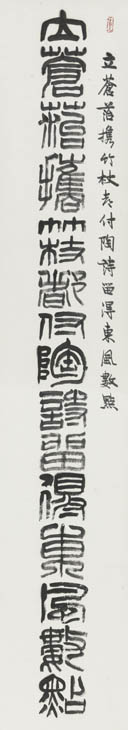 立蒼菭携竹杖都付陶詩留得東風數點
立蒼菭攜竹杖都付陶詩留得東風數點